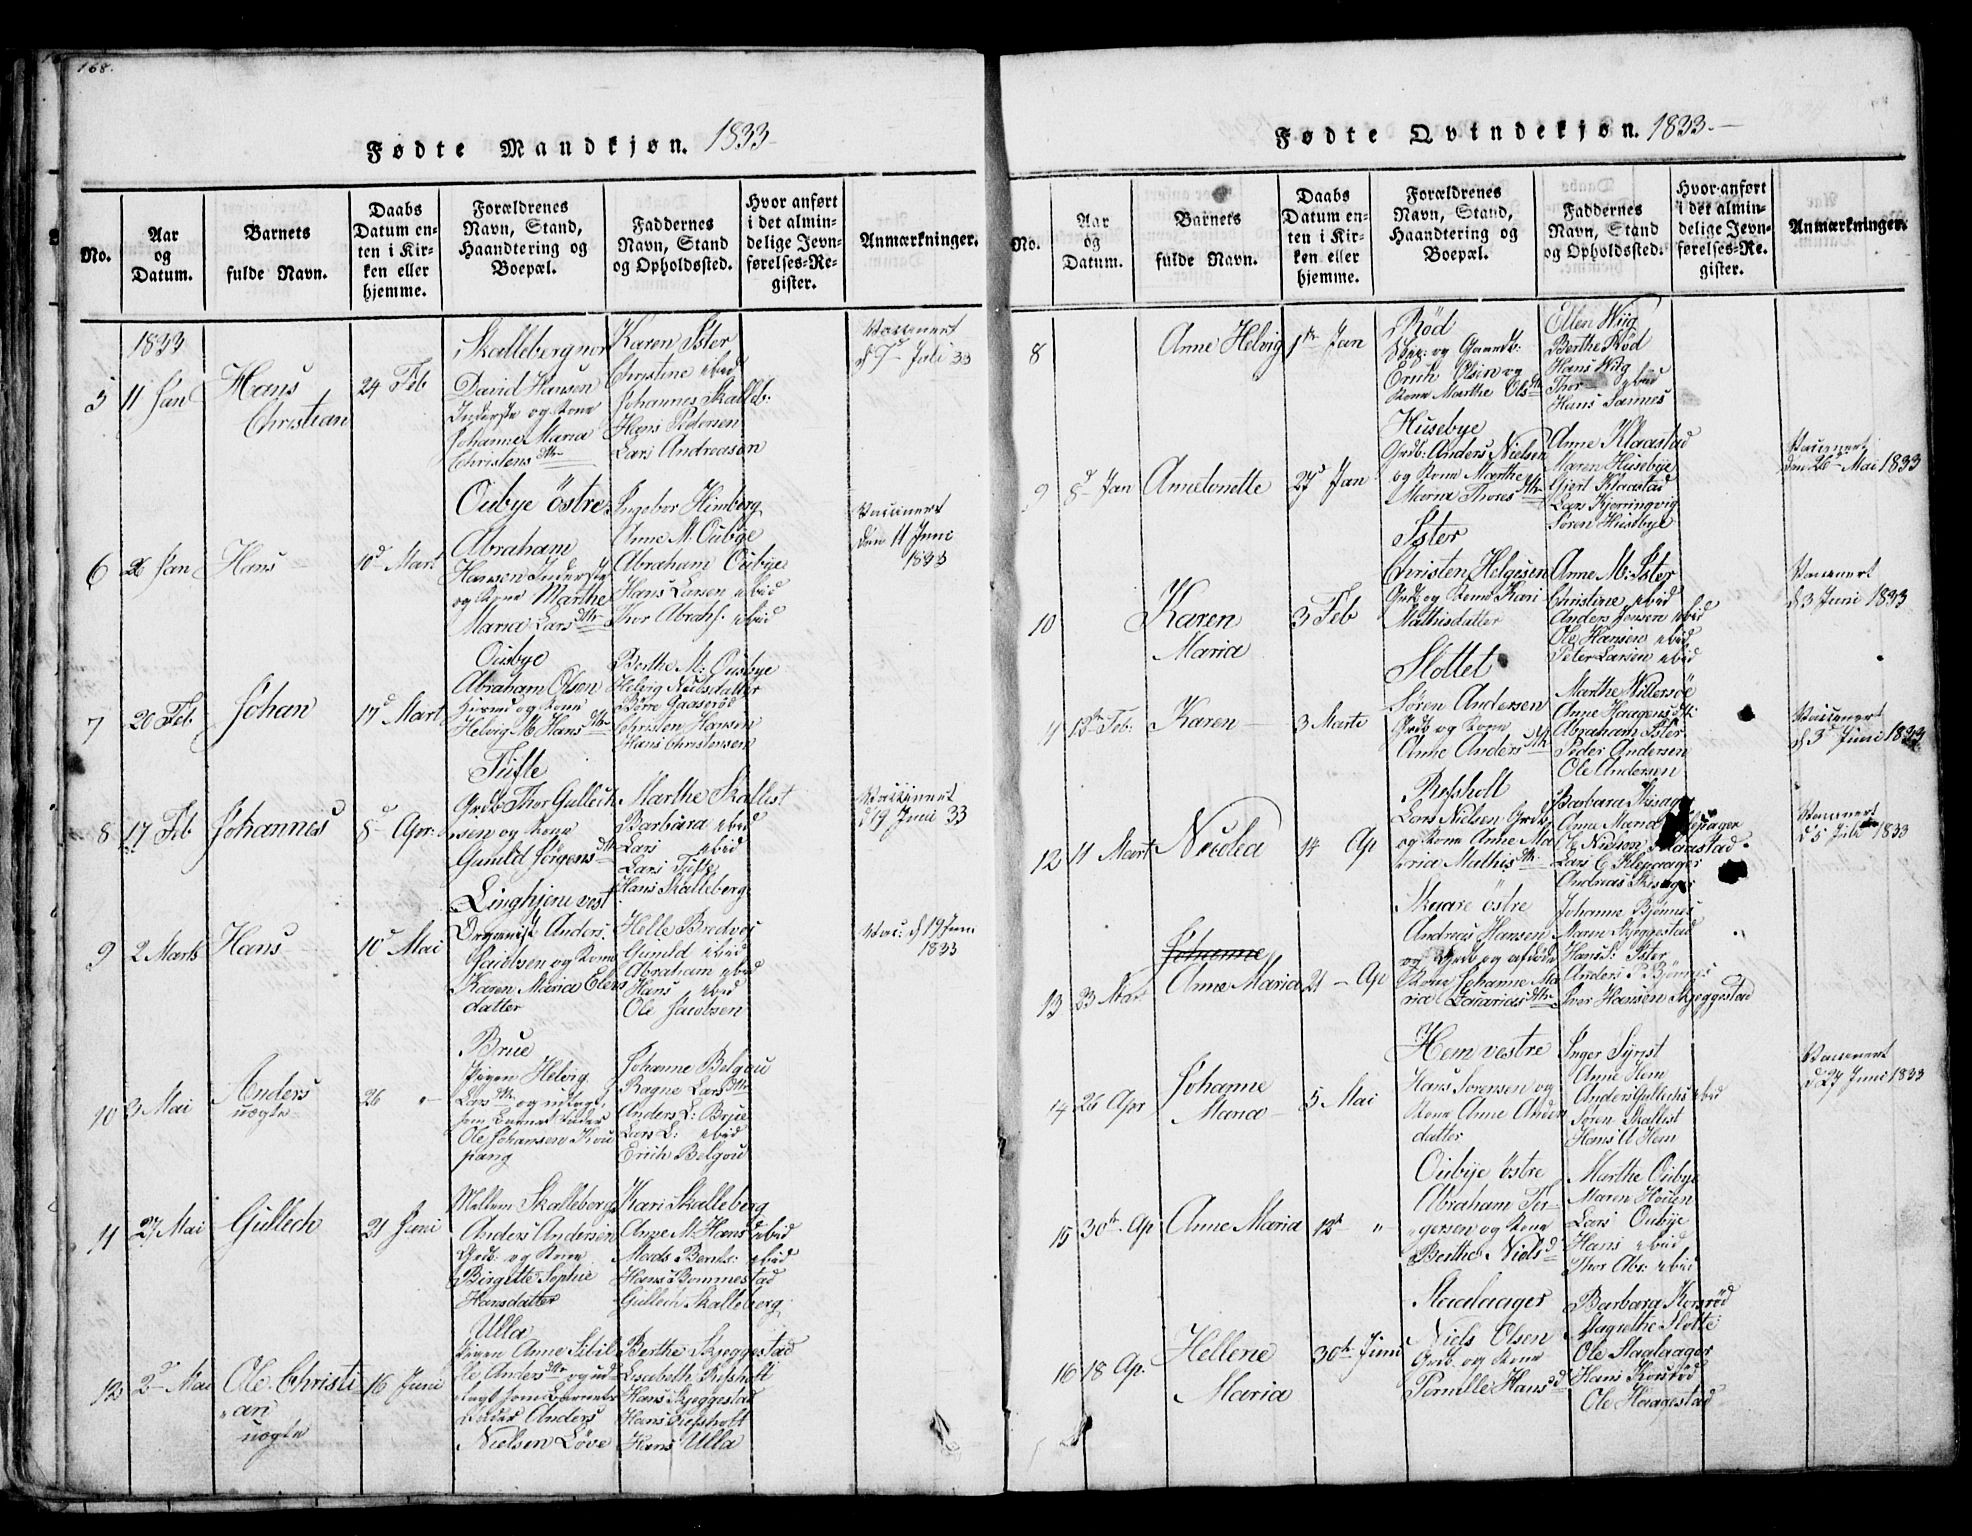 168.
Fødte Mandkjøn. 1833
No.
Aar
og
Datum.
Barnets
fulde Navn.
Daabs
Datum en-
ten i Kir-
ken eller
hjemme.
Forældrenes
Navn, Stand,
Haandtering og
Boepæl.
Faddernes
Navn, Stand
og Opholdssted.
Hvor anført
i det almin-
delige Jevn-
førelses-Re-
gister.
Anmærkninger.
1833
5
11 Jan
Hans
Christian
24 Feb
Skalleberg nor
David Hansen
Inderste og Kone
Johanne Maria
Christens dtr
Karen Ister
Christine ibid
Johannes Skalleb:
Hans Pedersen
Lars Andreasen
d 7d Juli 33
6
26 Jan
Hans
10d Mart
Oubye östre
Abraham
Hansen Inderste
og Kone Marthe
Maria Lars dtr
Ingebor Himberg
Anne M. Oubye
Abraham Oubye
Hans Larsen ibid
Thor Abrah. ibid
den 11 Juni
1833
7
20 Feb
Johan
17d Mart
Ousbye
Abraham Olsen
og Kone
Helvig M. Hans dtr
Berthe M: Ousbye
Helvig Nielsdatter
Börre Gaaserød
Christen Hansen
Hans Christensen
8
17 Feb
Johannes
8d Apr:
Tufte
Grdb: Thor Gullich
sen og Kone
Gunild Jörgens dtr
Marthe Skallest
Barbara ibid
Lars ibid
Lars Tufte
Hans Skalleberg
d 19 Juni 33
9
2 Marts
Hans
10d Mai
Linghjem vest
Organist Anders
Jacobsen og Kone
Karen Maria Elers
datter
Helle Bredvei
Gunild ibid
Abraham ibid
Hans ibid
Ole Jacobsen
Vac: d 19 Juni
1833
10
3 Mai
Anders
uægte
26 "
Brue
Pigen Helvig
Lars dtr og udlagt
som Barnets Fader
Ole Johansen Kou
pang
Johanne Belgou
Ragne Lars dtr
Anders L: Brue
Lars L: ibid
Erich Belgou
11
27 Mai
Gullich
21 Juni
Mellem Skalleberg
Anders Andersen
Grdb: og Kone
Birgitte Sophie
Hansdatter
Kari Skalleberg
Anne M: Hans ibid
Mads Bents: ibid
Hans Bommestad
Gullich Skalleberg
12
2d Mai
Ole Christi
an
uægte
16 Juni
Ulla
Pigen Anne Sibil
le Anders dtr og ud
lagt som Barnets
Fader Anders
Nielsen Löve
Berthe Skjeggestad
Lisabeth Refsholt
Hans Skjeggestad
Hans Refsholt
Hans Ulla
Fødte Qvindekjøn. 1833.
No.
Aar
og
Datum.
Barnets
fulde Navn.
Daabs
Datum en-
ten i Kir-
ken eller
hjemme.
Forældrenes
Navn, Stand,
Haandtering og
Boepæl.
Faddernes
Navn, Stand
og Opholdssted.
Hvor anført
i det almin-
delige Jevn-
førelses-Re-
gister.
Anmærkninger.
8
Anne Helvig
1te Jan
Röd
og Gaardb:
Erich Olsen og
Kone Marthe Ols dtr
Ellen Wiig
Berthe Röd
Hans Wiig
Thor ibid
Hans Sannes
9
8d Jan
Annetonette
27d Jan
Husebye
Grdb: Anders Nielsen
og Kone Marthe
Maria Thores dtr
Anne Klaastad
Maren Husebye
Giert Klaastad
Lars Kjerringvig
Sören Husebye
Vaccinert
den 26 Mai 1833
10
Karen
Maria
3 Feb
Ister
Christen Helgesen
Grdb og Kone Kari
Mathisdatter
Anne M: Ister
Christine ibid
Anders Jensen ibid
Ole Hansen ibid
Peter Larsen ibid
Vaccinert
d 3 Juni 1833
11
13de Feb:
Karen
3 Marts
Slottet
Sören Andersen
Grdb og Kone
Anne Anders dtr
Marthe Nittersöe
Anne Haagens dtr:
Abraham Ister
Peder Andersen
Ole Andersen
Vaccinert
d 3d Juni 1833
12
11 Mart
Nicolea
14 Ap
Refsholt
Lars Nielsen Grdb
og Kone Anne Ma
ria Mathis dtr
Barbara Skisager
Anne Maria Klepager
Ole Nielsen Klaastad
Lars C Klepaager
Andreas Skisager
Vaccinert
d 5 Juli 1833
13
23 Mar
Johanne
Anne Maria
21 Ap
Skaare östre
Andreas Hansen
og Grdb og afdöde
Kone Johanne Ma
ria Zacarias dtr
Johanne Bjönnes
Maren Skjeggestad
Hans S: Ister
Anders P Bjönnes
Iver Hansen Skjeggestad
14
26 Apr
Johanne
Maria
5 Mai
Hem vestre
Hans Sorensen og
Kone Anne Anders
datter
Inger Syrist
Anne Hem
Anders Gullichs ibid
Sören Skallest
Hans A Hem
Vaccinert
d 27 Juni 1833
15
30te Ap
Anne Maria
12te "
Oubye östre
Abraham Tor
gersen og Kone
Berthe Niels d
Marthe Oubye
Maren Houen
Lars Oubye
Hans ibid
Thor Abr: ibid
16
18 Ap.
Hellene
Maria
30te Juni
Staalaager
Niels Olsen
Grdb og Kone
Pernille Hans d
Barbara Korsröd
Magrethe Slotte
Ole Staalaager
Hans Korsröd
Ole Haagestad